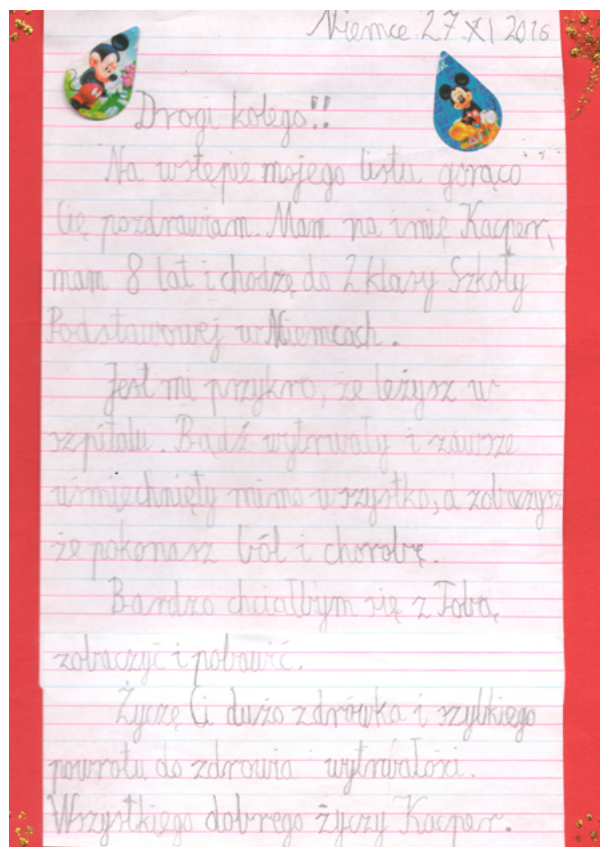 Niemce 27.XI 2016
Drogi kolego!!
Na wstępie mojego listu gorąco
Cię pozdrawiam. Mam na imię Kacper,
mam 8 lat i chodzę do 2 klasy Szkoły
Podstawowej w Niemcach.
Jest mi przykro, że leżysz w
szpitalu. Bądź wytrwały i zawsze
uśmiechnięty mimo wszystko, a zobaczysz
że pokonasz ból i chorobę.
Bardzo chciałbym się z Tobą
zobaczyć i pobawić.
Życzę Ci dużo zdrówka i szybkiego
powrotu do zdrowia i wytrwałości.
Wszystkiego dobrego życzy Kacper.